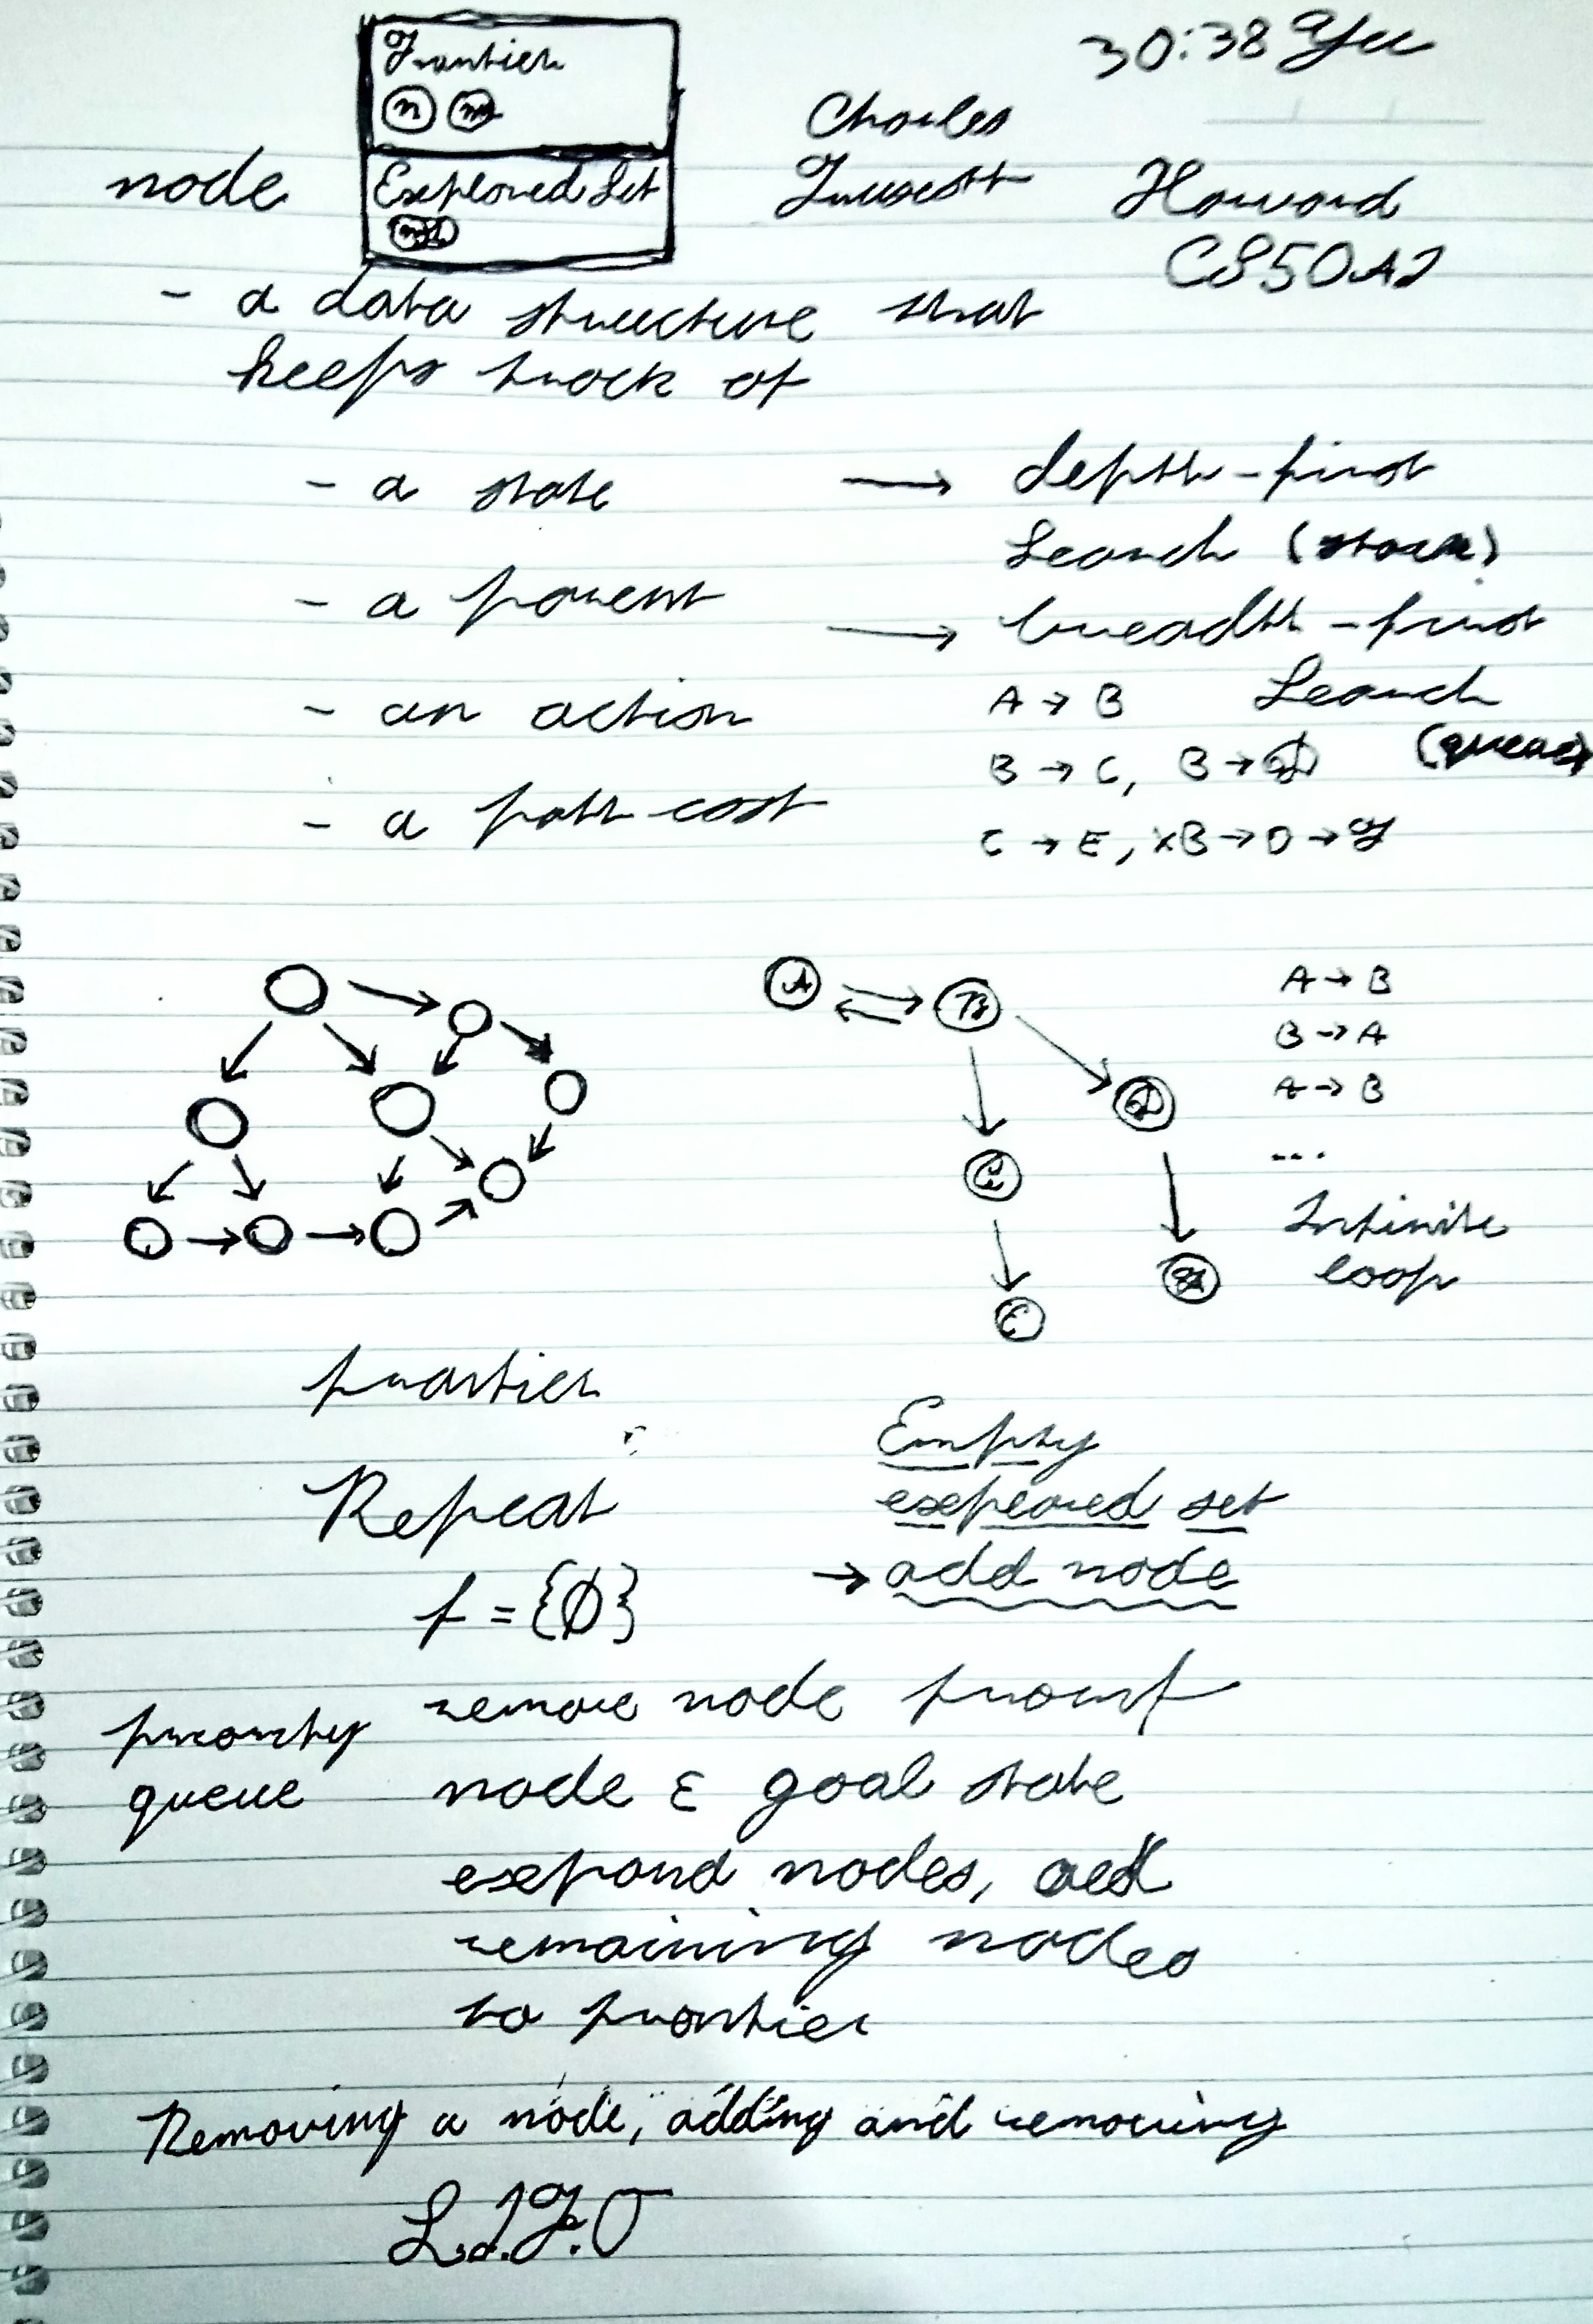 Frontier
n
30:38
Charles
node
Explored Set
Harvard
CS50AI
- a data structure that
keeps track of
- a state
→ depth-first
Search (stack)
- a parent
→ breadth-first
Search
(queue)
- an action
- a path cost
A → B
B → C, B → D
C → E, xB → D → F
A
B
C
D
E
A → B
B → A
A → B
...
Infinite
loop
frontier
Repeat
f = {∅}
Empty
explored set
→ add node
remove node from f
priority
queue
node ε goal state
expand nodes, add
remaining nodes
to frontier
Removing a node, adding and removing
L.I.F.O